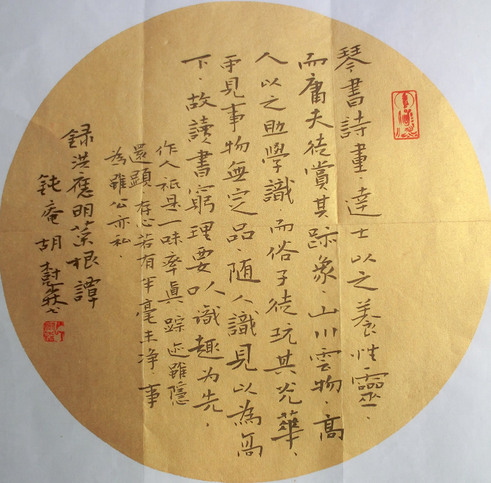 琴書詩畫.達士以之養性靈.
而庸夫徒賞其跡象.山川雲物.高
人以之助學識而俗子徒玩其光華.
可見事物無定品.隨人識見以為高
下.故讀書窮理要以識趣为先.
作人祇是一味率真踪迹雖隱
還顯.存心若有半毫未净.事
為雖公亦私.
録洪應明菜根譚
钝庵胡